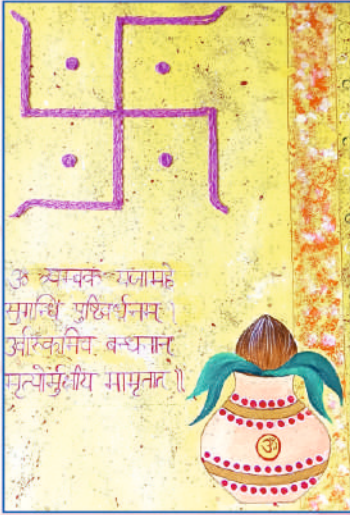 ॐ त्र्यम्बकं यजामहे
सुगन्धिं पुष्टिवर्धनम् ।
उर्वारुकमिव बन्धनान्
मृत्योर्मुक्षीय मामृतात् ॥
ॐ